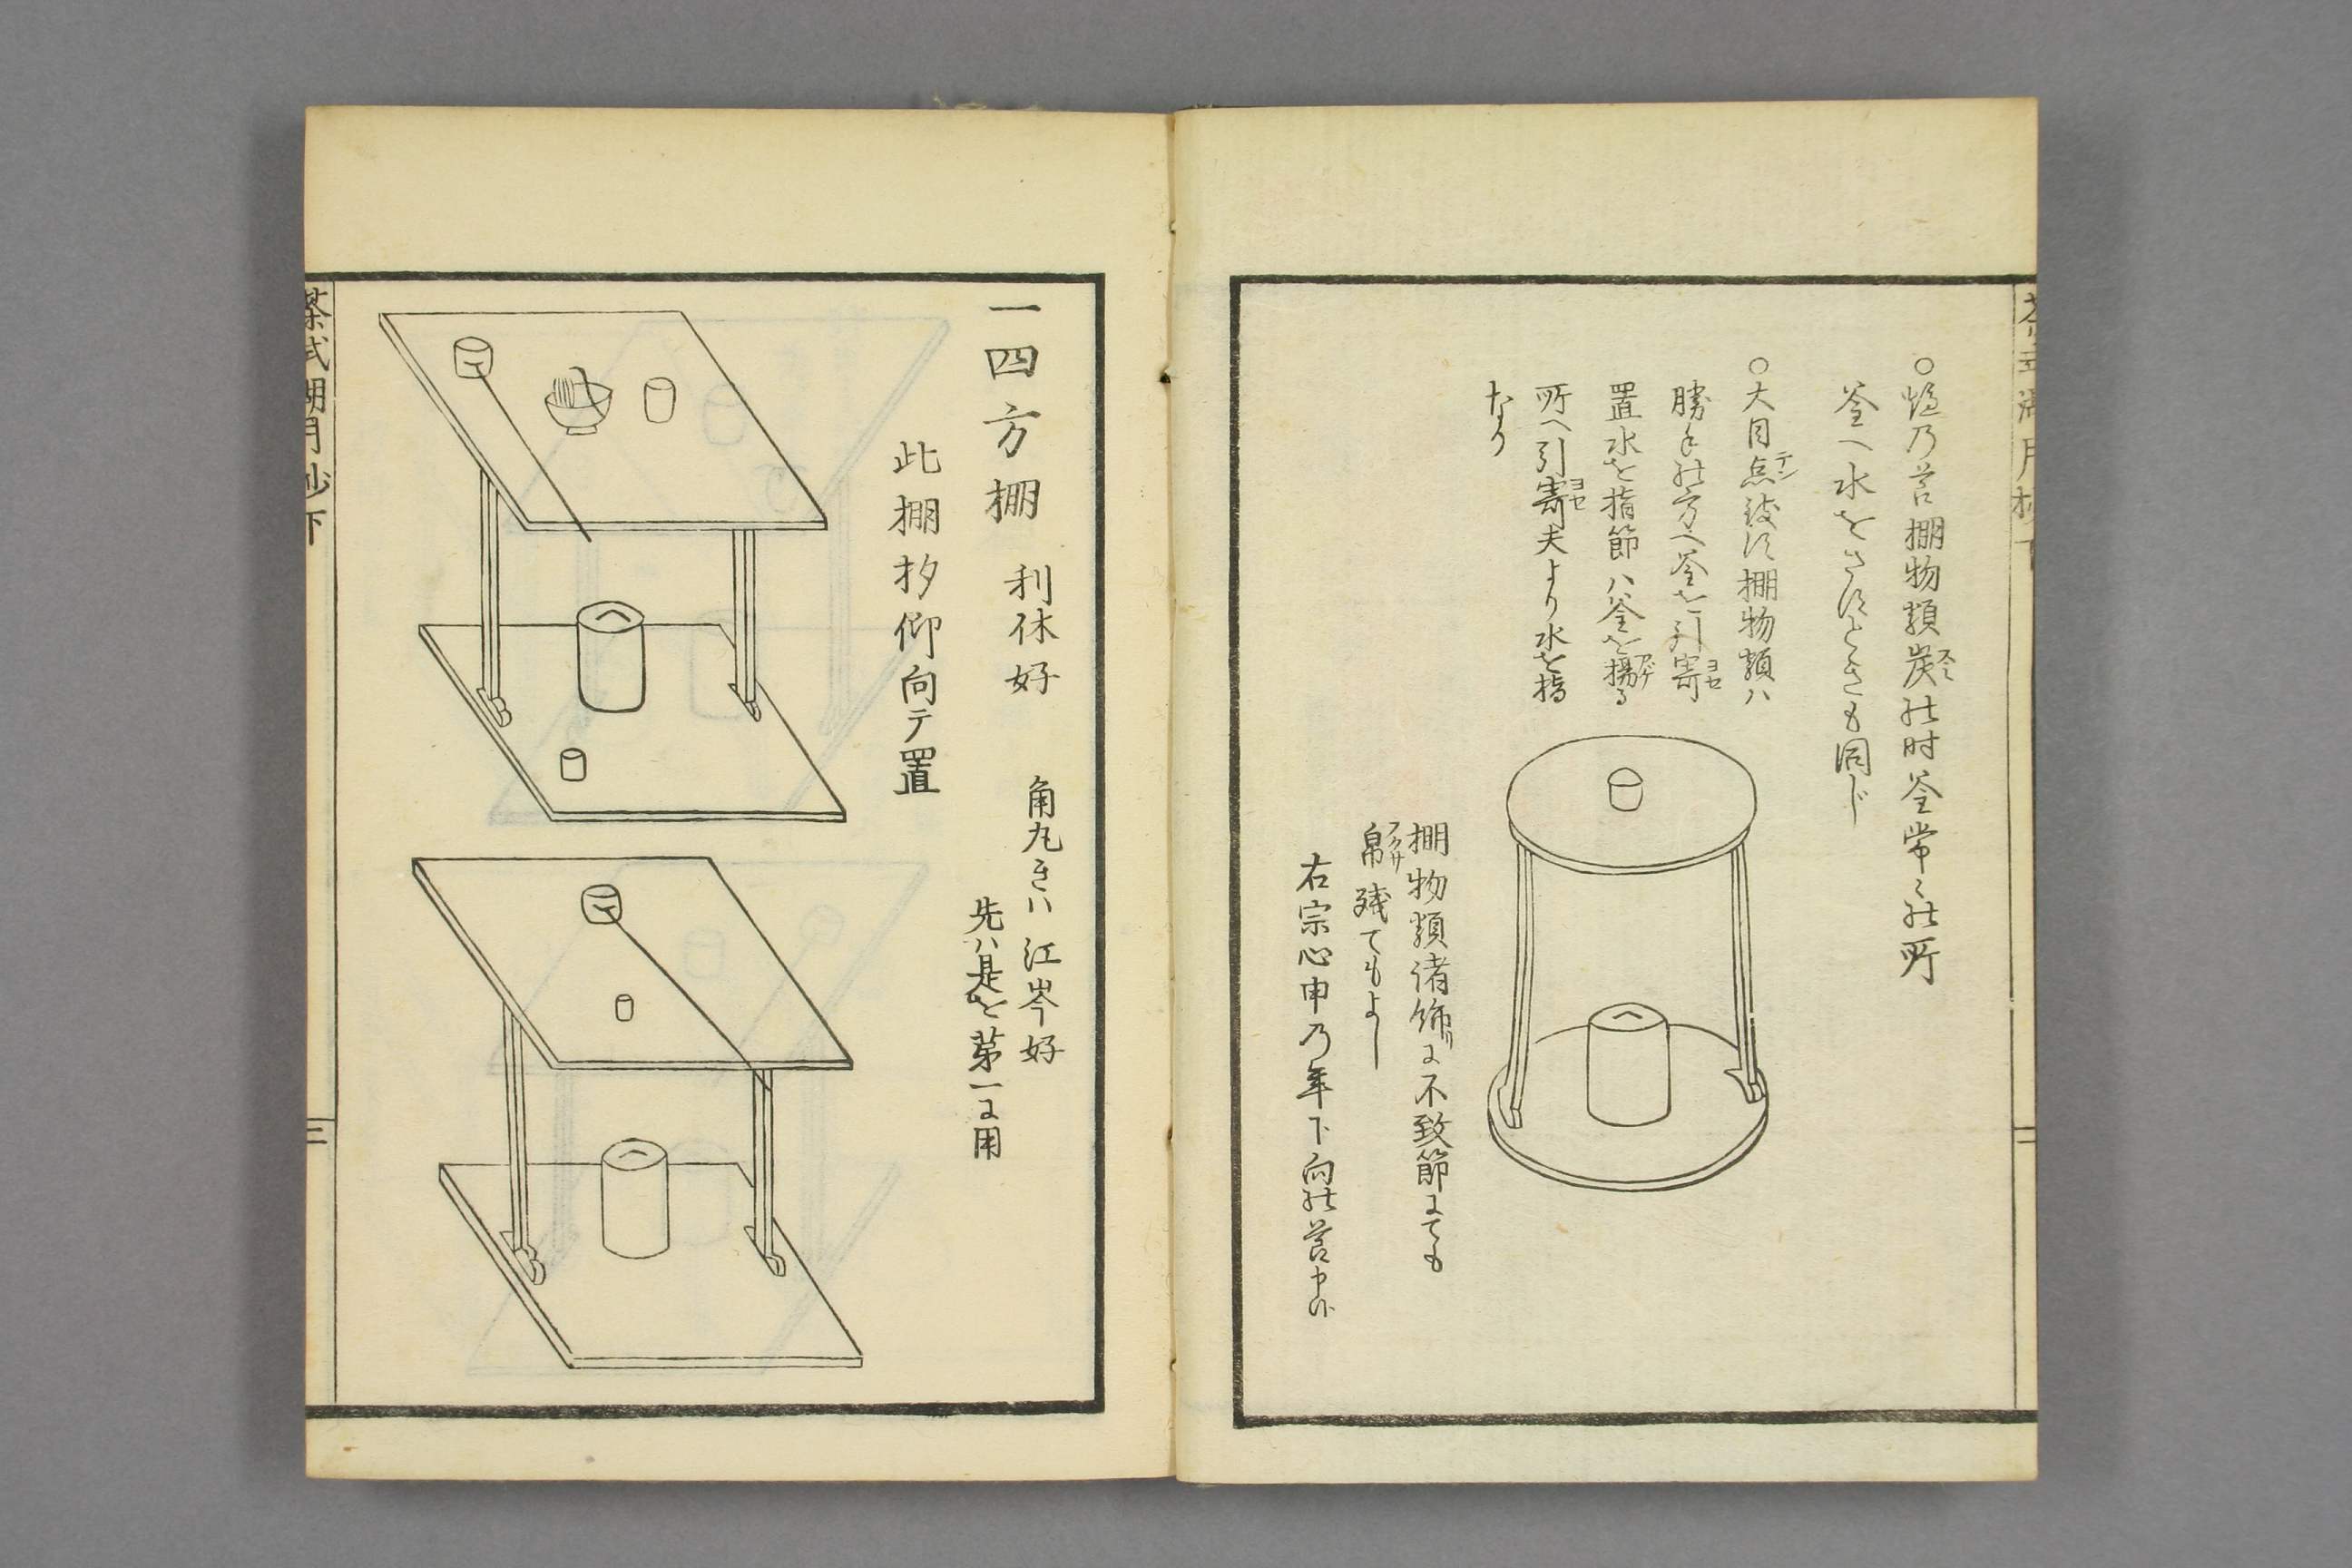 ○爐乃营棚物類炭スミ乃时釜常々乃所
釜へ水をさすときも同じ
○大目点テン後は棚物類ハ
勝手乃方へ釜を引寄ヨセ
置水を指節ハ釜を揚アゲる
所へ引寄ヨセ夫より水を指
なり
棚物類诸飾リ不致節にても
帛フクサ残てもよし
右宗心申乃年下向乃
一四方棚 利休好
角丸きハ江岑好
先ハ是を第一に用
此棚杓仰向テ置
茶式湖月抄下
二